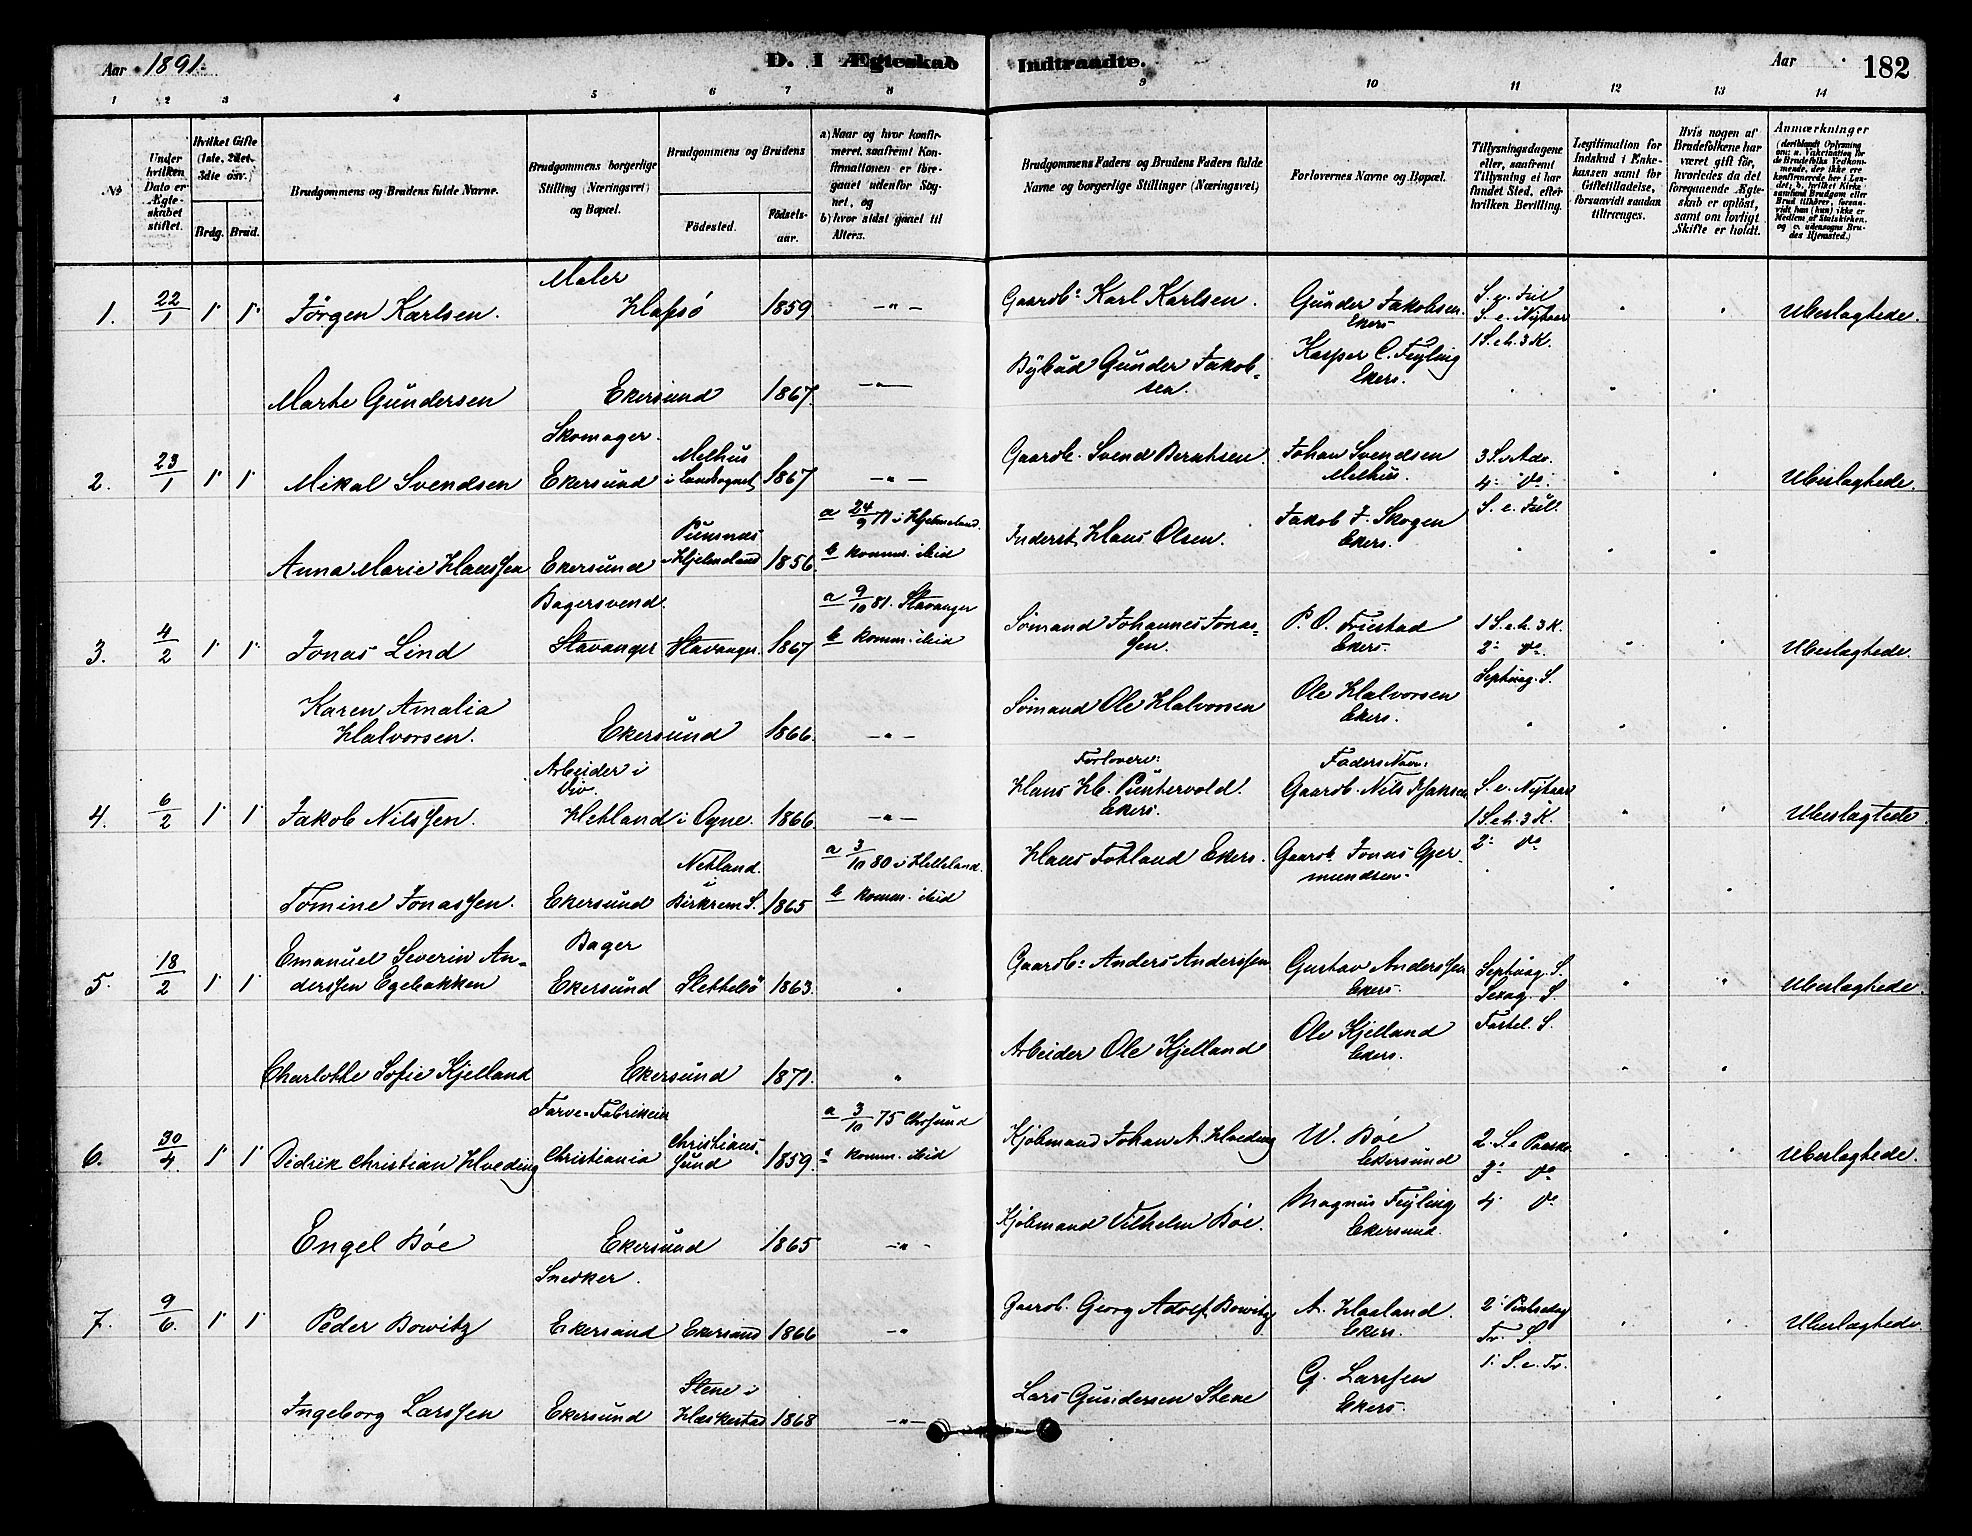 Aar 1891.
D. I Ægteskab Indtraadte.
Aar
182
1 2 3 4 5 6 7 8 9 10 11 12 13 14
No
Under hvilken Dato er Ægteskabet stiftet.
Hvilket Gifte (1ste, 2det, 3die osv.)
Brdg. Brud.
Brudgommens og Brudens fulde Navne.
Brudgommens borgerlige Stilling (Næringsvei) og Bopæl.
Brudgommens og Brudens
Födested.
Födselsaar.
a) Naar og hvor konfirmeret, saafremt Konfirmationen er foregaaet udenfor Sognet, og
b) hvor sidst gaaet til Alters.
Brudgommens Faders og Brudens Faders fulde Navne og borgerlige Stillinger (Næringsvei)
Forlovernes Navne og Bopæl.
Tillysningsdagene eller, saafremt Tillysning ei har fundet Sted, efter hvilken Bevilling.
Legitimation for Indskud i Enkekassen samt for Giftetilladelse, forsaavidt saadan tiltrænges.
Hvis nogen af Brudefolkene har været gift før, hvorledes da det foregaaende Ægteskab er opløst, samt om lovligt Skifte er holdt.
Anmærkninger (deriblandt Oplysning om: a. Vakcination for de Brudefolks Vedkommende, der ikke ere konfirmerede her i Landet; b. hvilket Kirkesamfund Brudgom eller Brud tilhører, forsaavidt han (hun) ikke er Medlem af Statskirken, og c. udensogns Brudes Hjemsted.)
1. 22/1 1 1 Jörgen Karlsen. Maler Hafsö 1859 -"- Gaardb: Karl Karlsen. Gunder Jakobsen. Ekers S. e. Jul S. e. Nytaar 1 S. e. h. 3 K. Uberslagtede.
Marte Gundersen Ekersund 1867. -"- Bybud Gunder Jakobsen. Kasper C. Feyling Ekers.
2. 23/1 1 1 Mikal Svendsen Skomager. Ekersund Melhus i Landsognet 1867 -"- Gaardb. Svend Berntsen. Johan Svendsen Melhus. 3 S. i Adv. 4. Do. S. e. Jul. Uberslagtede.
Anna Marie Hanssen Ekersund Hjelmeland 1856. a 24/9 71 i Hjelmeland. b komm. ibid Inderst Hans Olsen. Jakob J. Skogen Ekers.
3. 4/2 1 1 Jonas Lind Bagersvend. Stavanger Stavanger. 1867 a 9/10 81. Stavanger b komm. ibid Sömand Johannes Jonassen. P. O. Friestad Ekers. 1 S. e. h. 3 K. 2. Do. Septuag. S. Uberslagtede.
Karen Amalia Halvorsen. Ekersund 1866. -"- Sömand Ole Halvorsen Ole Halvorsen Ekers.
4. 6/2 1 1 Jakob Nilssen. Arbeider i Div. Hetland i Ogne. 1866. -"- Forlovere: Hans Hb. Puntervold. Ekers. Faders Navn: Gaardb. Nils S. e. Nytaar 1 S. e. h. 3 K. 2. Do Uberslagtede.
Tomine Jonassen. Ekersund Netland i Birkrem S. 1865 a 3/10 80 i Helleland. b komm. ibid Hans Fotland Ekers. Gaardb. Jonas Gjermundsen.
5. 18/2 1 1 Emanuel Severin Anderssen Egebakken Bager Ekersund Slettebö 1863. " Gaardb: Anders Anderssen Gustav Anderssen Ekers. Septuag. S. Sexag. S. Fastel. S. Uberslagtede.
Charlotte Sofie Kjelland Ekersund 1871. " Arbeider Ole Kjelland Ole Kjelland Ekers.
6. 30/4 1 1 Didrik Christian Hveding Farve-Fabrikein Christiania Christianssund 1859. a 3/10 75 Chrsund komm. ibid Kjöbmand Johan A. Hveding W. Böe Ekersund 2. S. e Paaske 3. Do 4. Do. Uberslagtede.
Engel Böe Ekersund 1865 -"- Kjöbmand Vilhelm Böe. Magnus Feyling Ekersund.
7. 9/6. 1 1 Peder Bowitz Snedker. Ekersund Ekersund 1866 -"- Gaardb. Georg Adolf Bowitz A. Haaland. Ekers. 2. Pintsedag Tr. S. 1. S. e. Tr. Uberslagtede
Ingeborg Larssen Ekersund Stene i Heskestad 1868 -"- Lars Gundersen Stene G. Larssen Ekers.